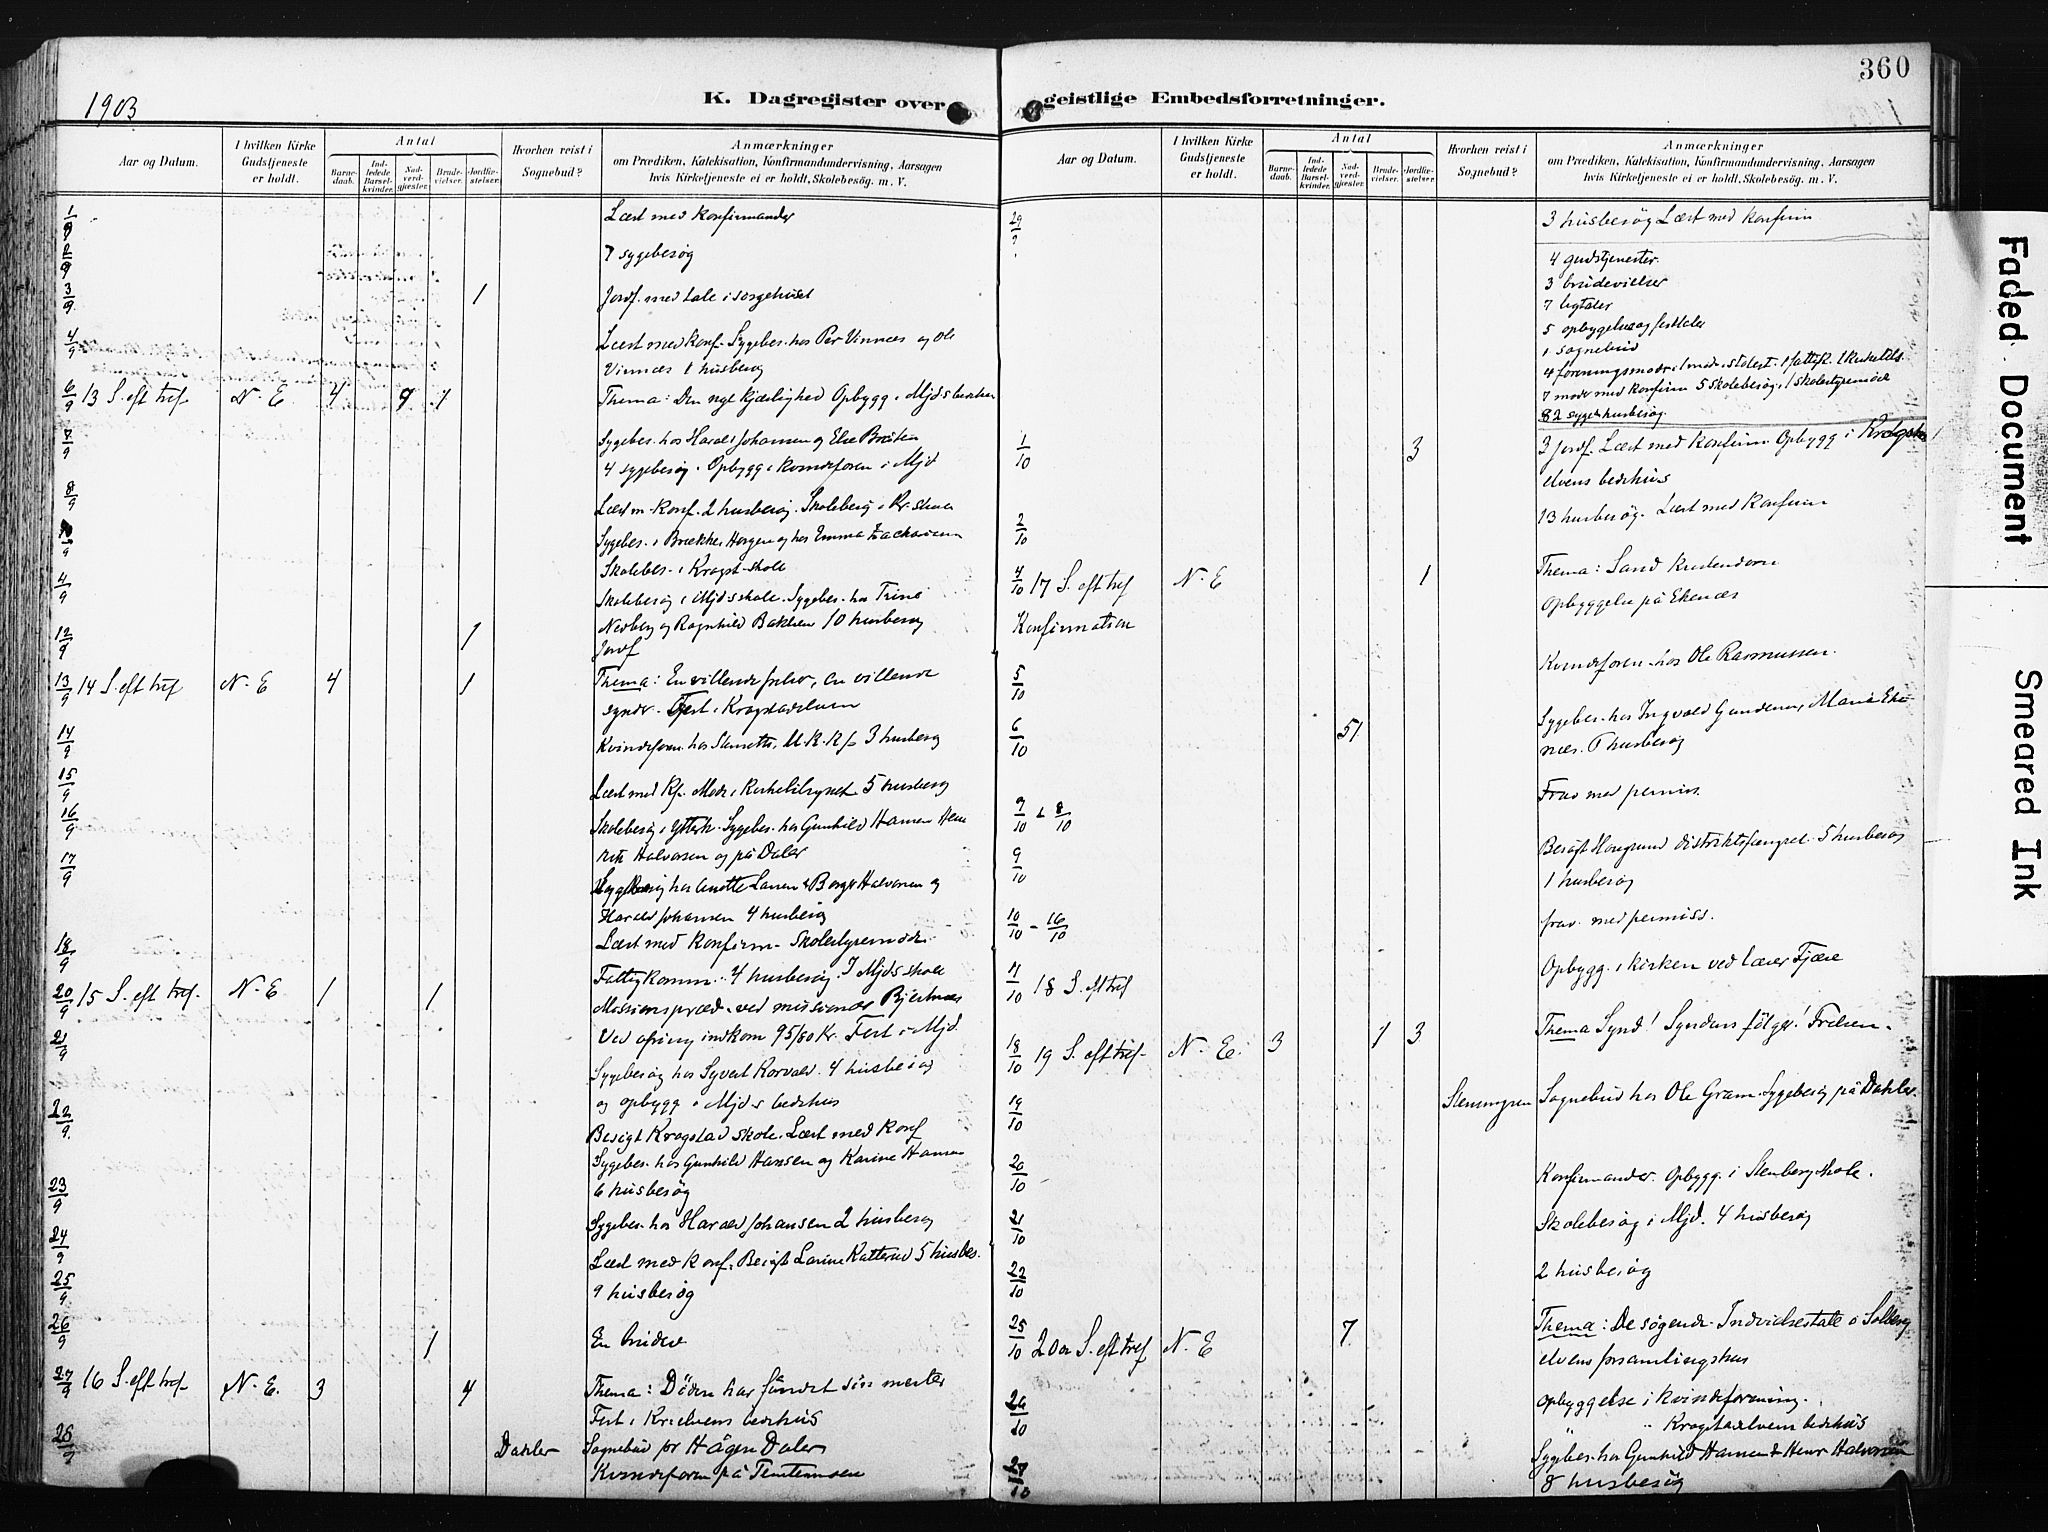 360
1903
K. Dagregister over geistlige Embedsforretninger.
Aar og Datum.
I hvilken Kirke Gudstjeneste er holdt.
Antal
Barnedaab.
Indledede Barselkvinder.
Nadverdgjester.
Brudevielser.
Jordfæstelser.
Hvorhen reist i Sognebud?
Anmærkninger
om Prædiken, Katekisation, Konfirmandundervisning, Aarsagen
hvis Kirketjeneste ei er holdt, Skolebesøg. m. V.
1/9 Læst med Konfirmander
2/9 7 sygebesøg
3/9 1 Jordf. med tale i sørgehuset
4/9 Læst med Konf. Sygebes. hos Per Vinnæs og Ole
Vinnæs 1 husbesøg
6/9 13 S. eft tref N. E 4 9 1 Thema: Den nye kjærlighed Opbygg. i Mjds bedehus
7/9 Sygebes. hos Harald Johansen og Else Bråten
4 sygebesøg. Opbygg. i Kvindeforen i Mjd
8/9 Læst m. Konf. 2 husbesøg. Skolebesøg i Kr. skole
Sygebes. i Brække, Horgen og hos Emma Zachariasen
Skolebes. i Krogst. skole
Skolebesøg i Mjds skole. Sygebes. hos Trine
Nedberg og Ragnhild Bakken 10 husbesøg
12/9 1 Jordf
13/9 14 S. eft tref N. E 4 1 Thema: En villende frelser, en villende
synder. Fest i Krogstadelven
14/9 Kvindeforen. hos Stenseth, M. K. Kf. 3 husbesøg
15/9 Læst med Kf. Møde i Kirketilsynet. 5 husbesøg
16/9 Skolebesøg i Ytterk. Sygebes. hos Gunhild Hansen Hen
rik Halvorsen og på Daler
17/9 Sygebesøg hos Anette Larsen & Borger Halvorsen og
Harald Johansen 4 husbesøg
18/9 Læst med Konfirm. Skolestyremøde
Fattigkomm. 4 husbesøg. I Mjds skole
20/9 15 S. eft tref. N. E. 1 1 Missionspræd. ved missionær Bjertnæs
21/9 Ved ofring indkom 95/80 Kr. Fest i Mjd.
Sygebesøg hos Syvert Korvald. 4 husbesøg
og opbygg i Mjds bedehus
22/9 Besøgt Krogstad skole. Læst med Konf
Sygebes. hos Gunhild Hansen og Karine Hansen
23/9 6 husbesøg
Sygebes. hos Harald Johansen 2 husbesøg
24/9 Læst med Konf. Besøgt Larine Katterud 5 husbes.
25/9 9 husbesøg
26/9 1 En brudev
27/9 16 S. eft tref N. E. 3 4 Thema: Døden har fundet sin mester
Fest i Kr.elvens bedehus
28/9 Dahler Sognebud pr Hågen Daler
Kvindeforen på Temtemoen
Aar og Datum.
I hvilken Kirke Gudstjeneste er holdt.
Antal
Barnedaab.
Indledede Barselkvinder.
Nadverdgjester.
Brudevielser.
Jordfæstelser.
Hvorhen reist i Sognebud?
Anmærkninger
om Prædiken, Katekisation, Konfirmandundervisning, Aarsagen
hvis Kirketjeneste ei er holdt, Skolebesøg. m. V.
29/9 3 husbesøg Læst med Konfirm
4 gudstjenester.
3 brudevielser
7 ligtaler
5 opbyggelser og festtaler
1 sognebud
4 foreningsmøder
7 møder med konfirm 5 skolebesøg, 1 skolestyremøde
82 syge & husbesøg.
1/10 3 3 Jordf. Læst med Konfirm. Opbygg i Krogstad
elvens bedehus
2/10 13 husbesøg. Læst med Konfirm
4/10 17 S. eft tref N. E 1 Thema: Sand kristendom
Konfirmation Opbyggelse på Ekenæs
5/10 Kvindeforen. hos Ole Rasmussen.
6/10 51 Sygebes. hos Ingvald Gundersen, Marie Eke
næs. 8 husbesøg
7/10 & 8/10 Frav med permiss.
9/10 Besøgt Hougsund distriktsfængsel. 5 husbesøg
1 husbesøg
10/10 - 16/10 frav. med permiss.
11/10 18 S. eft tref Opbygg. i kirken ved lærer Fjære
18/10 19 S. eft tref. N. E. 3 1 3 Thema Synd! Syndens følger! Frelsen.
19/10 Stenningen Sognebud hos Ole Gram. Sygebesøg på Dahler.
20/10 Konfirmander. Opbygg. i Stenberg skole.
21/10 Skolebesøg i Mjd. 4 husbesøg
22/10 2 husbesøg
25/10 20 S. eft tref N. E 7 Thema: De søgende. Indvielsestale i Solberg
elvens forsamlingshus
26/10 Opbyggelse i Kvindeforening.
" Krogstadelvens bedehus
27/10 Sygebes. hos Gunhild Hansen & Henr Halvorsen
8 husbesøg
Faded Document
Smeared Ink